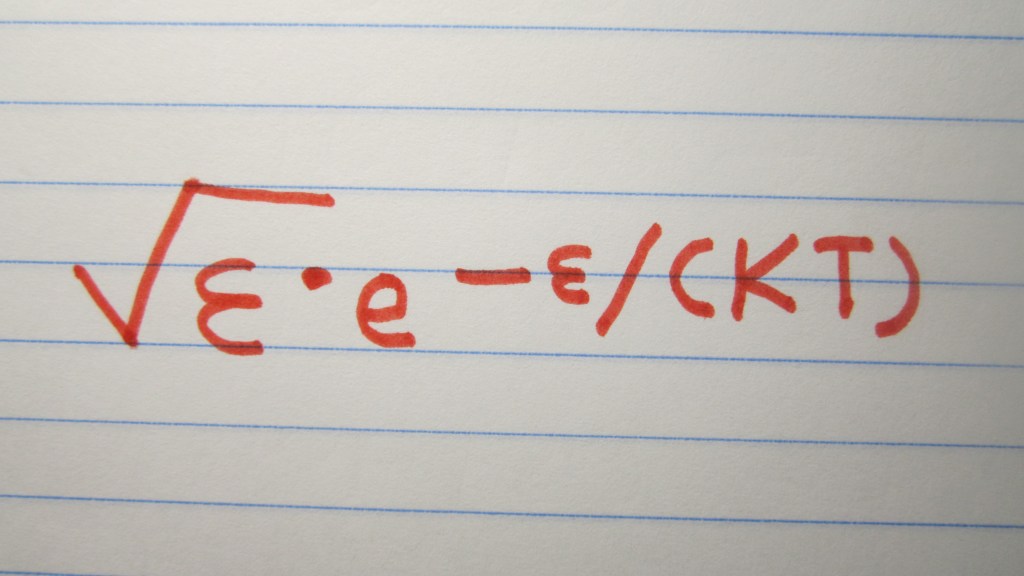 √ε · e^(-ε/(KT))